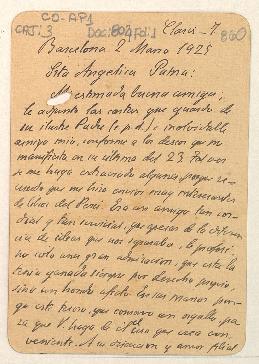 CO-AP1
CAJ: 3
Claris - 7
860
Barcelona 2 Marzo 1925
Srta Angelica Palma:
Mi estimada buena amiga:
le adjunto las cartas que guardo de
su ilustre Padre (e.p.d.) e inolvidable
amigo mio, conforme a los deseos que me
manifiesta en su última del 23
se me haya extraviado alguna porque re-
cuerdo que me hizo envios muy interesantes
de libros del Perú. Era un amigo tan cor-
dial y tan servicial, que apesar de la diferen-
cia de ideas que nos separaba, le profesé,
no solo una gran admiración, que esta la
tenia ganada siempre por derecho propio,
sino un hondo afecto. En sus manos pon-
go este tesoro, que conservo con orgullo, pa-
ra que V. haga lo que crea con-
veniente. A su devoción y amor filial